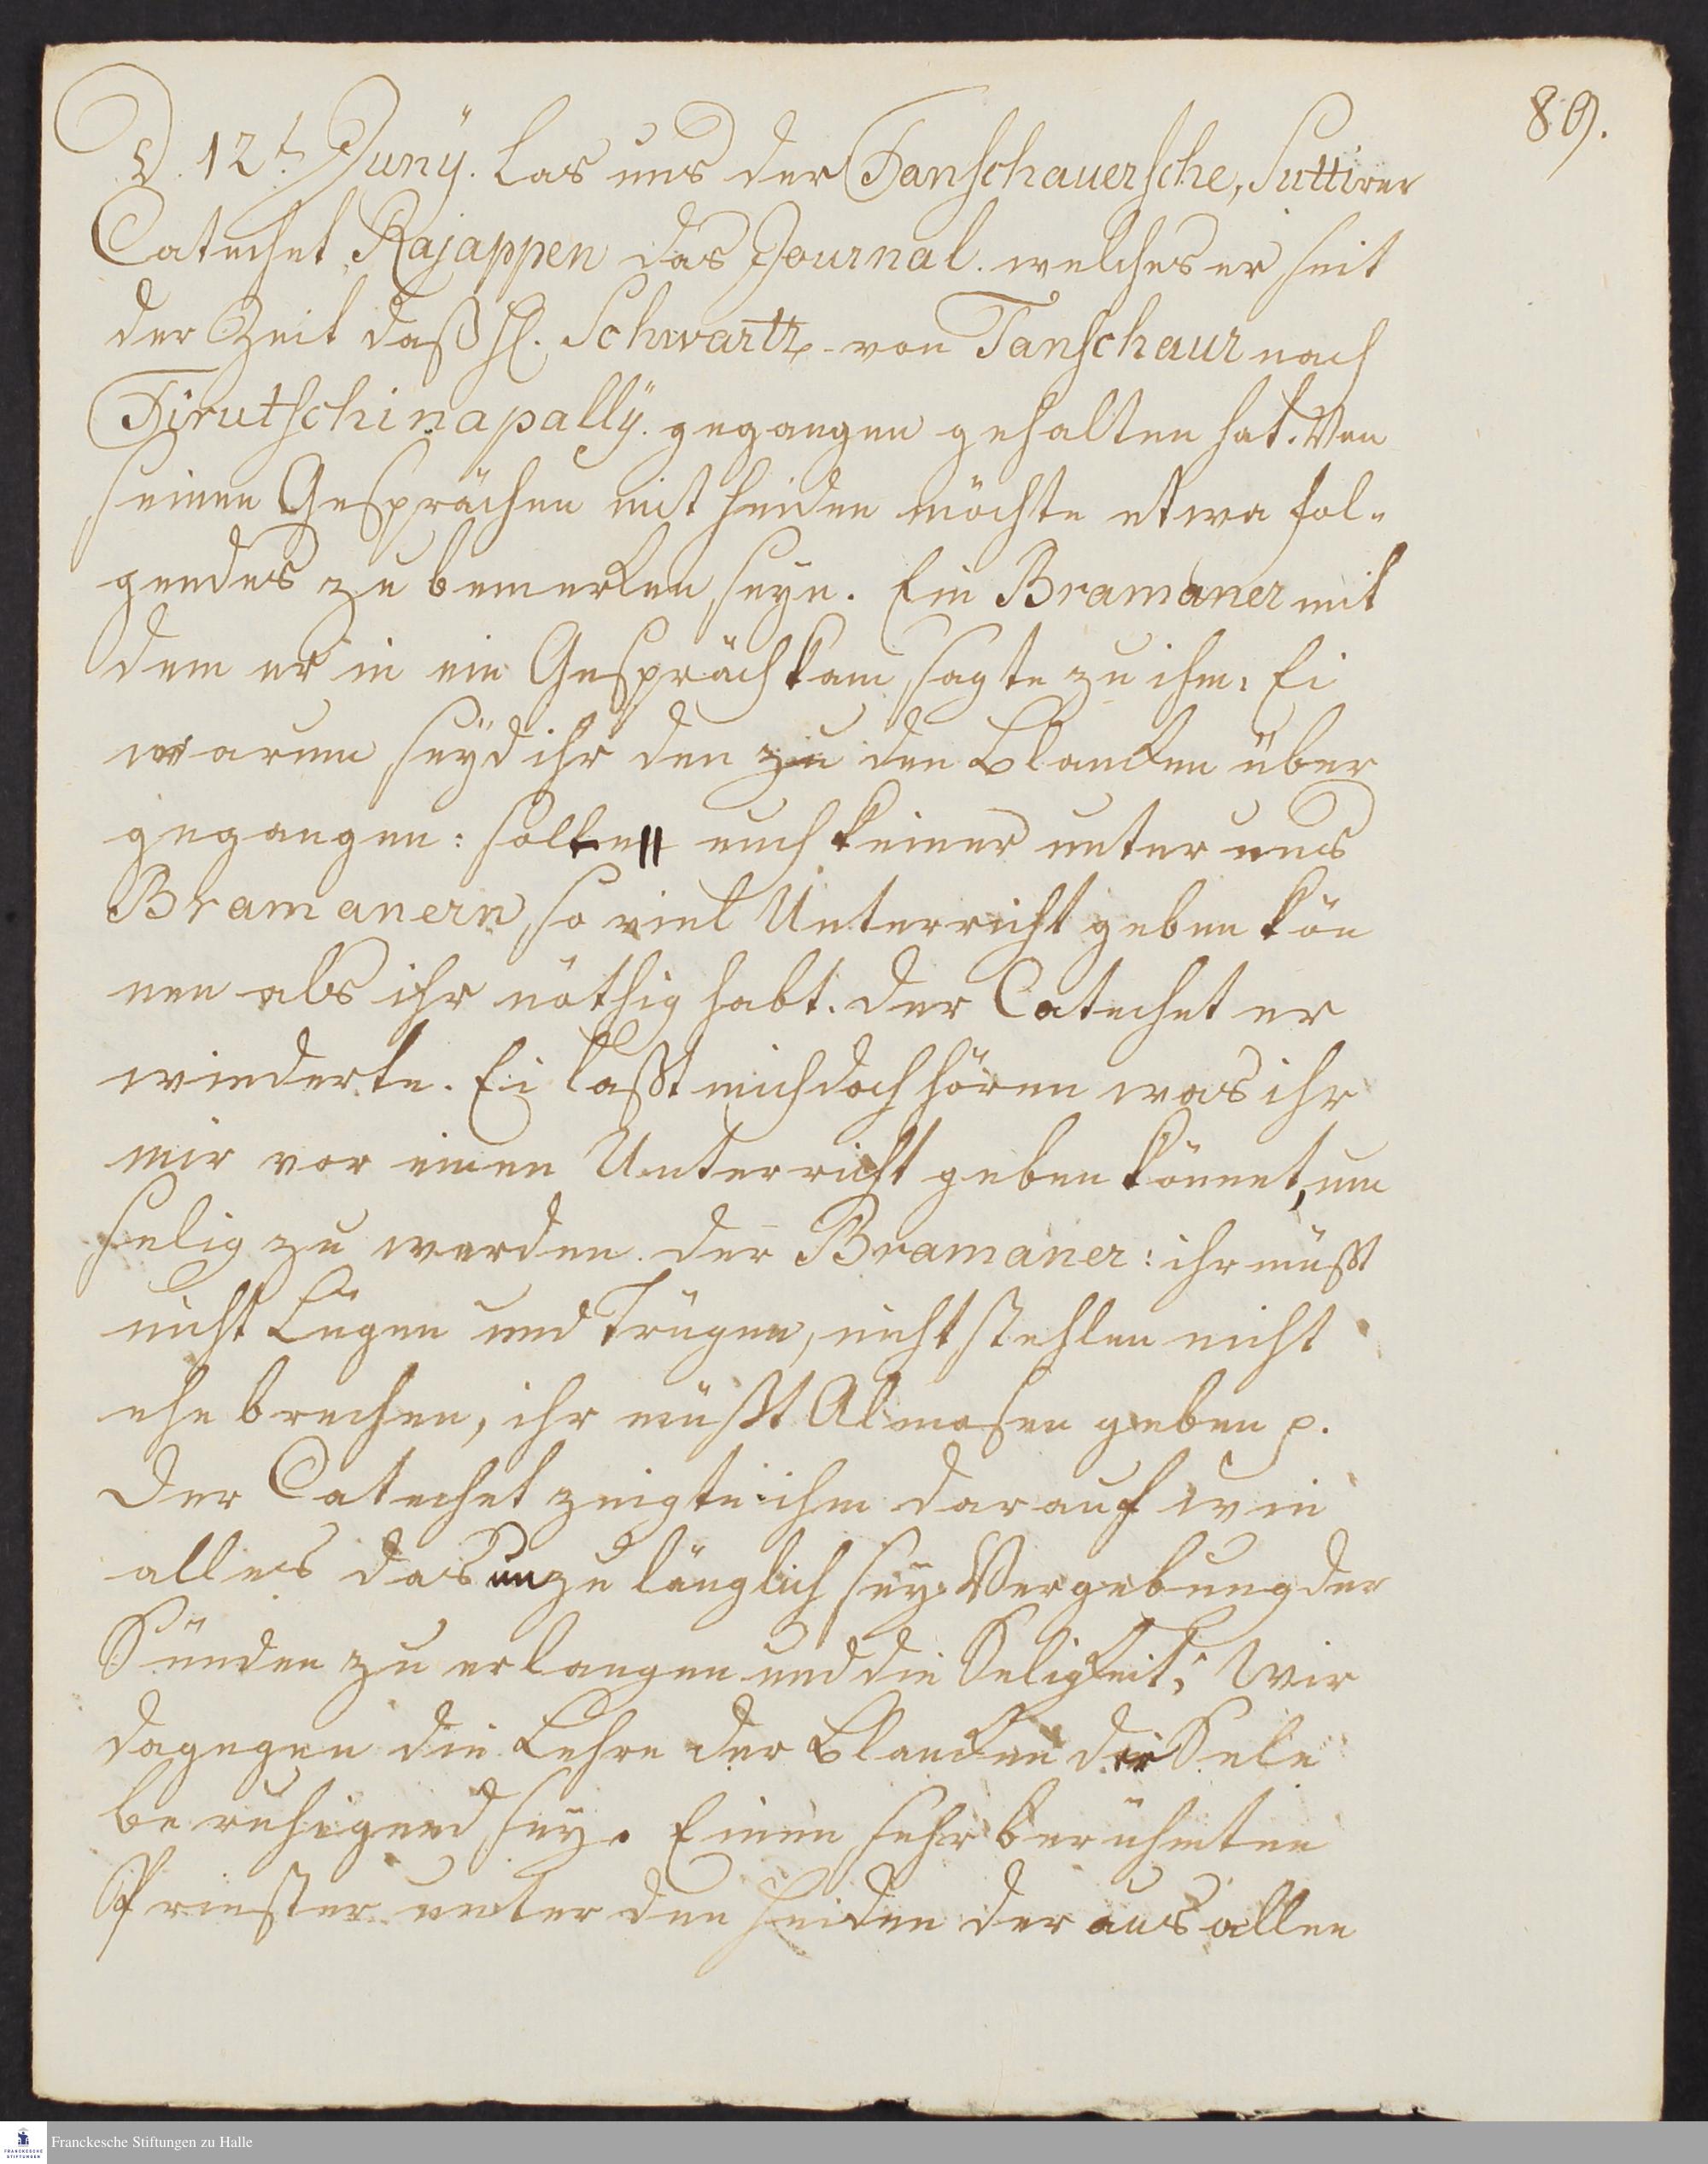 89.
D. 12t. Junÿ. las uns der Tanschauersche, Suttirer
Catechet Rajappen das Journal. welches er seit
der Zeit daß H. Schwartz von Tanschaur nach
Tirutschinapallÿ. gegangen gehalten hat. Von
seinen Gesprächen mit Heiden möchte etwa fol-
gendes zu bemerken seyn. Ein Bramaner mit
dem er in ein Gespräch kam, sagte zu ihm: Ei
warum seÿd ihr den zu den Blancken über
gegangen: solte euch keiner unter uns
Bramanern, so viel Unterricht geben kön
nen als ihr nöthig habt. der Catechet er
wiederte. Ei laßt mich doch hören was ihr
mir vor einen Unterricht geben könnet, um
selig zu werden. der Bramaner: ihr müßt
nicht Lügen und Trügen, nicht stehlen nicht
ehe brechen, ihr müßt Almosen geben p.
Der Catechet zeigte ihm darauf wie
alles das unzulänglich sey, Vergebung der
Sünden zu erlangen und die Seligkeit; Wie
dagegen die Lehre der Blancken die Sele
beruhigend sey. Einen sehr berühmten
Priester unter den Heiden der aus allen
Franckesche Stiftungen zu Halle
FRANCKESCHE
STIFTUNGEN